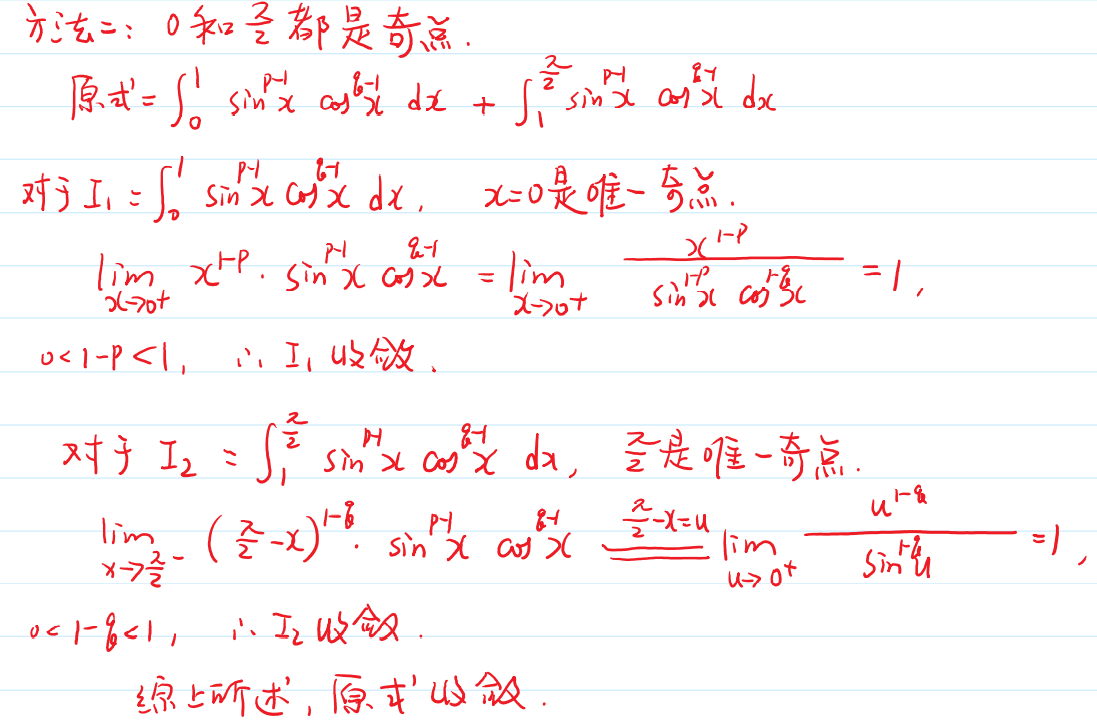 方法二：0和π/2都是奇点.
原式=∫₀¹ sin^{p-1}x cos^{q-1}x dx + ∫₁^{π/2} sin^{p-1}x cos^{q-1}x dx
对于 I₁=∫₀¹ sin^{p-1}x cos^{q-1}x dx, x=0是唯一奇点.
lim_{x→0⁺} x^{1-p}·sin^{p-1}x cos^{q-1}x = lim_{x→0⁺} x^{1-p}/(sin^{1-p}x cos^{1-q}x) = 1,
0<1-p<1, ∴ I₁收敛.
对于 I₂ = ∫₁^{π/2} sin^{p-1}x cos^{q-1}x dx, π/2是唯一奇点.
lim_{x→π/2⁻} (π/2-x)^{1-q}·sin^{p-1}x cos^{q-1}x \xlongequal{π/2-x=u} lim_{u→0⁺} u^{1-q}/sin^{1-q}u = 1,
0<1-q<1, ∴ I₂收敛.
综上所述, 原式收敛.